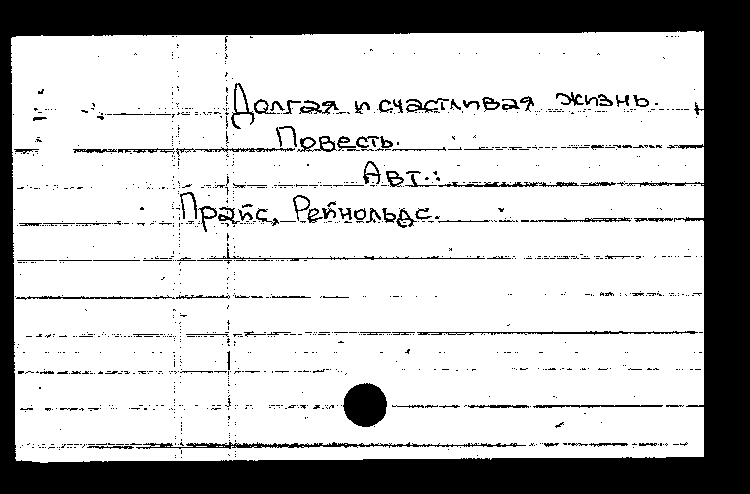 Долгая и счастливая жизнь.
Повесть.
Авт.:
Прайс, Рейнольдс.